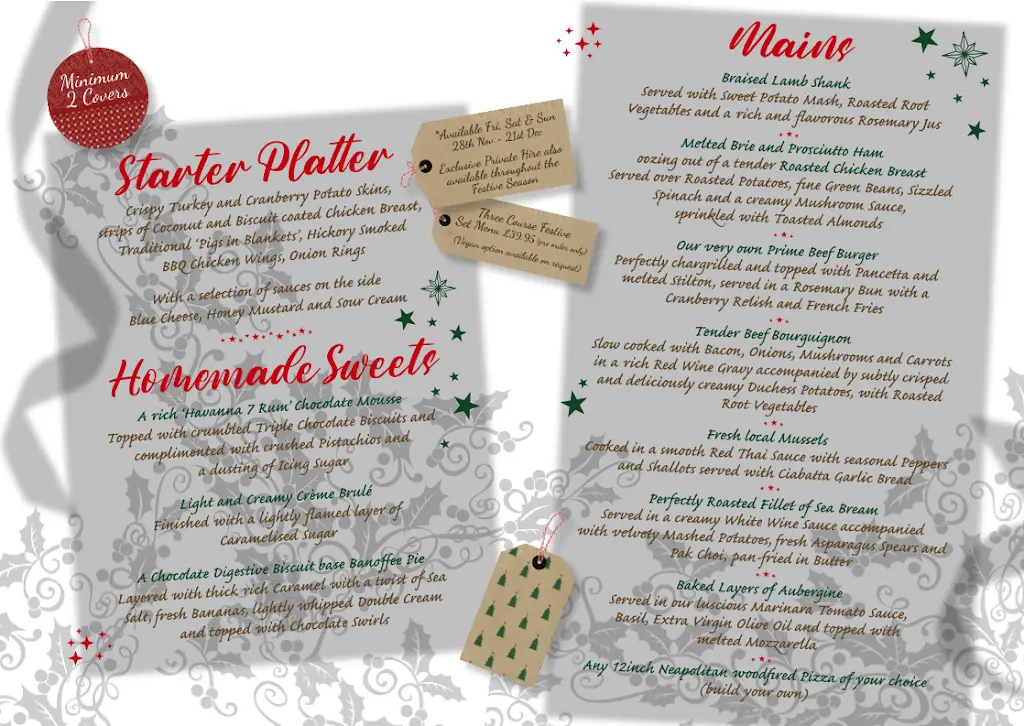 Minimum
2 Covers
Starter Platter
Crispy Turkey and Cranberry Potato Skins,
strips of Coconut and Biscuit coated Chicken Breast,
Traditional 'Pigs in Blankets', Hickory Smoked
BBQ Chicken Wings, Onion Rings
With a selection of sauces on the side
Blue Cheese, Honey Mustard and Sour Cream
Homemade Sweets
A rich 'Havanna 7 Rum' Chocolate Mousse
Topped with crumbled Triple Chocolate Biscuits and
complimented with crushed Pistachios and
a dusting of Icing Sugar
Light and Creamy Crème Brulé
Finished with a lightly flamed layer of
Caramelised Sugar
A Chocolate Digestive Biscuit base Banoffee Pie
Layered with thick rich Caramel with a twist of Sea
Salt, fresh Bananas, lightly whipped Double Cream
and topped with Chocolate Swirls
*Available Fri, Sat & Sun
28th Nov - 21st Dec
Exclusive Private Hire also
available throughout the
Festive Season
Three Course Festive
Set Menu £39.95 (pre order only)
(Vegan option available on request)
Mains
Braised Lamb Shank
Served with Sweet Potato Mash, Roasted Root
Vegetables and a rich and flavorous Rosemary Jus
Melted Brie and Prosciutto Ham
oozing out of a tender Roasted Chicken Breast
Served over Roasted Potatoes, fine Green Beans, Sizzled
Spinach and a creamy Mushroom Sauce,
sprinkled with Toasted Almonds
Our very own Prime Beef Burger
Perfectly chargrilled and topped with Pancetta and
melted Stilton, served in a Rosemary Bun with a
Cranberry Relish and French Fries
Tender Beef Bourguignon
Slow cooked with Bacon, Onions, Mushrooms and Carrots
in a rich Red Wine Gravy accompanied by subtly crisped
and deliciously creamy Duchess Potatoes, with Roasted
Root Vegetables
Fresh local Mussels
Cooked in a smooth Red Thai Sauce with seasonal Peppers
and Shallots served with Ciabatta Garlic Bread
Perfectly Roasted Fillet of Sea Bream
Served in a creamy White Wine Sauce accompanied
with velvety Mashed Potatoes, fresh Asparagus Spears and
Pak Choi, pan-fried in Butter
Baked Layers of Aubergine
Served in our luscious Marinara Tomato Sauce,
Basil, Extra Virgin Olive Oil and topped with
melted Mozzarella
Any 12inch Neapolitan woodfired Pizza of your choice
(build your own)